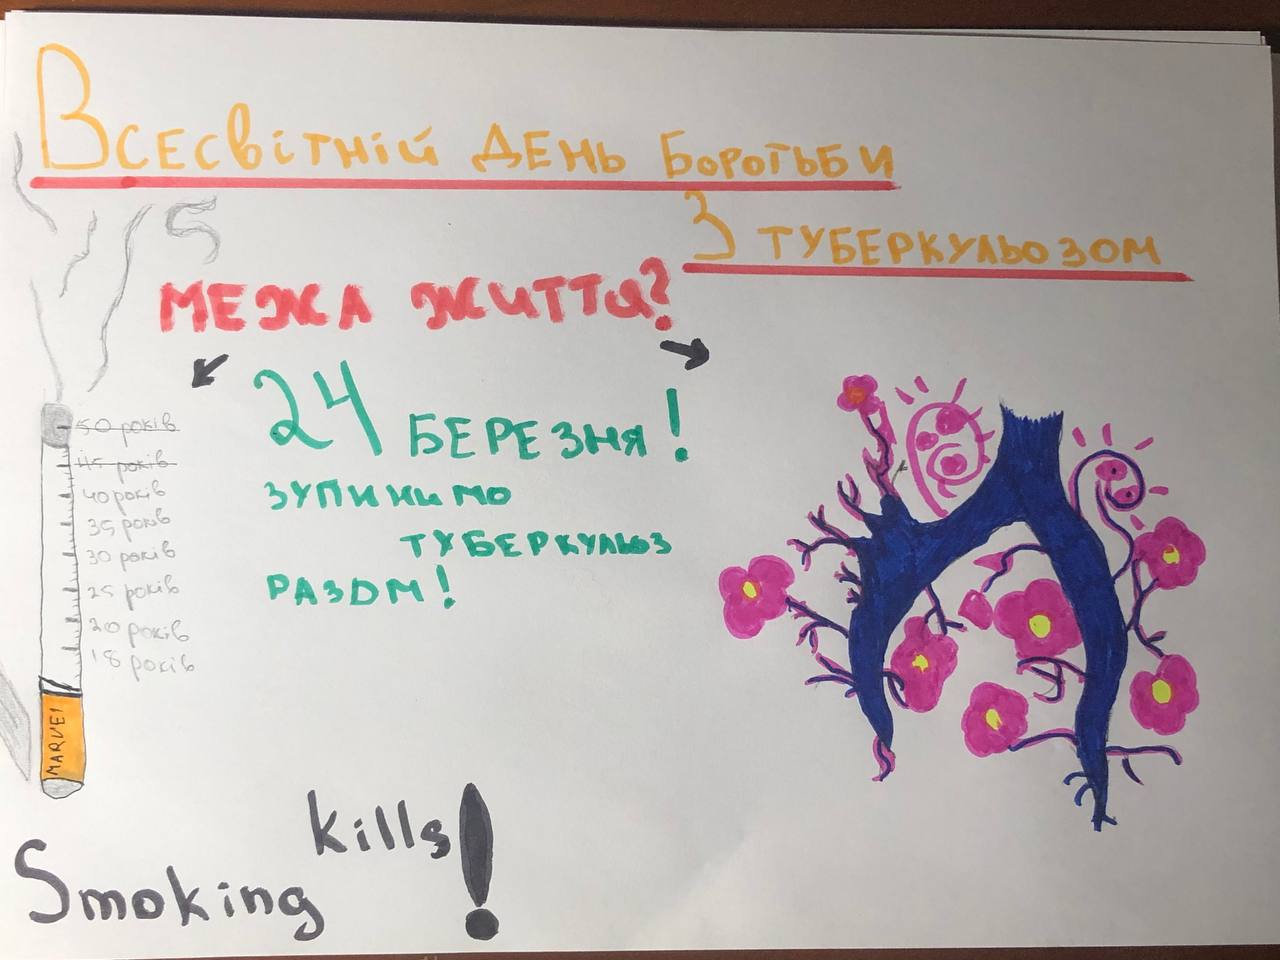 Всесвітній день боротьби
з туберкульозом
межа життя?
24 березня!
зупинимо
туберкульоз
разом!
50 років
45 років
40 років
35 років
30 років
25 років
20 років
18 років
MARVEl
kills!
Smoking